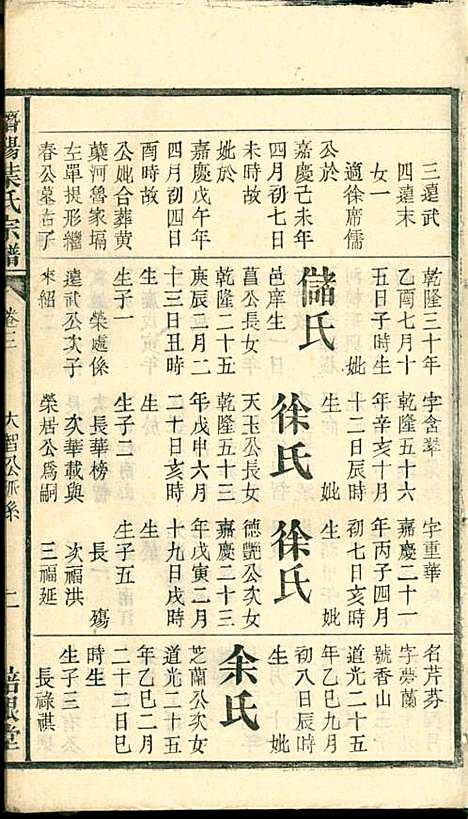 三遠武
四遠末
女一
適徐席儒
公於
嘉慶己未年
四月初七日
未時故
妣於
嘉慶戊午年
四月初四日
酉時故
公妣合葬黃
葉河魯家塥
左單提形繼
春公墓右子
乾隆三十年
乙酉七月十
五日子時生
妣
儲氏
邑庠生
菖公長女
乾隆二十五
庚辰二月二
十三日丑時
生
生子一
榮處係
遠武公次子
來紹
字含翠
乾隆五十六
年辛亥十月
十二日辰時
生 妣
徐氏
天玉公長女
乾隆五十三
年戊申六月
二十日亥時
生
生子二
長華榜
次華載與
榮居公爲嗣
字重華
嘉慶二十一
年丙子四月
初七日亥時
生 妣
徐氏
德艷公次女
嘉慶二十三
年戊寅二月
十九日戌時
生
生子五
長 殤
次福洪
三福延
名芹芬
字夢蘭
號香山
道光二十五
年乙巳九月
初八日辰時
生 妣
余氏
芝蘭公次女
道光二十五
年乙巳二月
二十二日巳
時生
生子三
長祿祺
濟陽葉氏宗譜
卷三
大智公派系
二
培恩堂